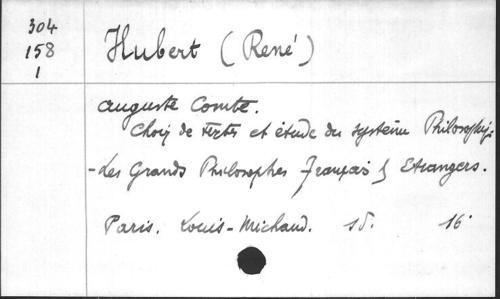 304
158
1
Hubert (René)
Auguste Comte.
Choix de textes et étude du système Philosophiq.
- Les Grands Philosophes Français & Etrangers.
Paris. Louis-Michaud. s d. 16°